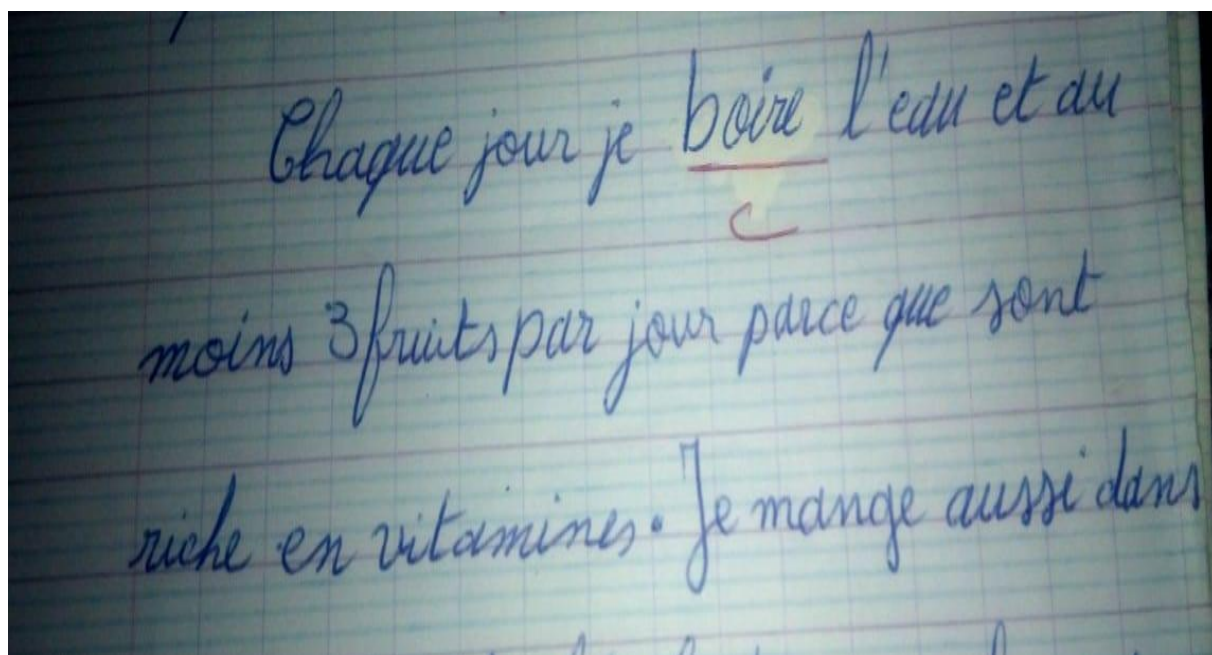 Chaque jour je boire l'eau et au
C
moins 3 fruits par jour parce que sont
riche en vitamines. Je mange aussi dans